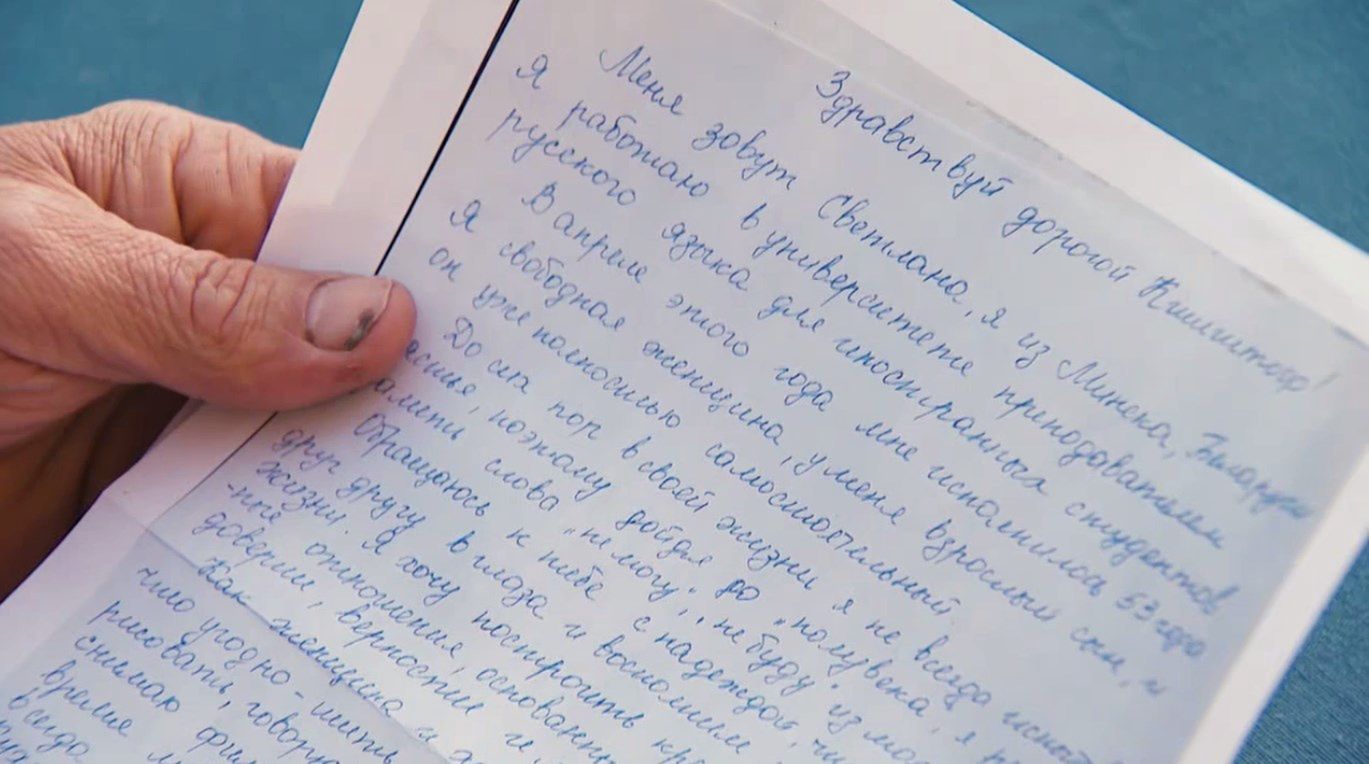 Здравствуй дорогой Кшиштоф!
Меня зовут Светлана, я из Минска, Беларуси
Я работаю в университете приподавателем
русского языка для иностранных студентов
В апреле этого года мне исполнилось 53 года
Я свободная женщина, у меня взрослый сын, и
он уже полностью самостоятельный
До сих пор в своей жизни я не всегда испыт
астье, поэтому дойдя до "полувека", я
амяти слова "не могу", "не буду". из
Обращаюсь к тебе с надеждой,
друг другу в глаза и
жизни. Я хочу построить кре
отношения, основанны
доверии, верности и
Как женщина я
что угодно - шить
рисовать, говорю
снимаю фил
время м
всегда